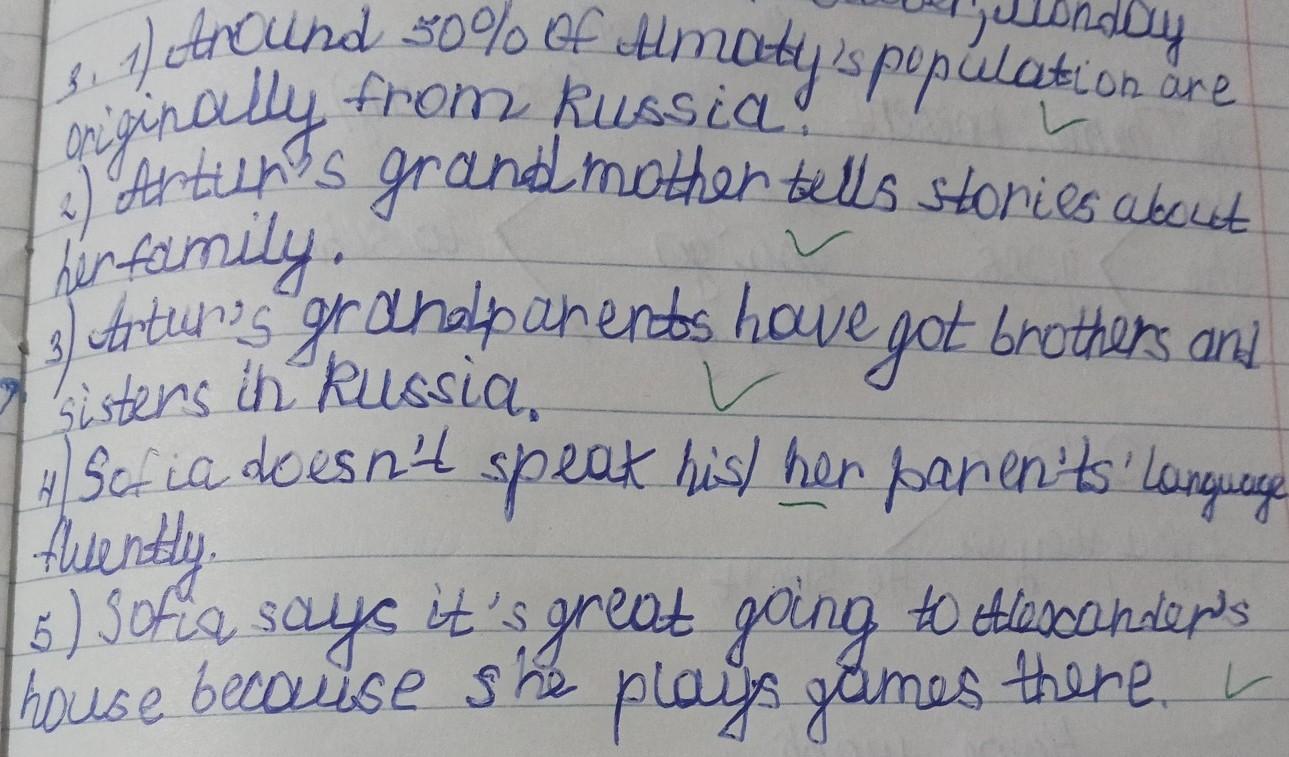 Monday
3. 1) Around 50% of Almaty's population are
originally from Russia.
2) Artur's grandmother tells stories about
her family.
3) Artur's grandparents have got brothers and
sisters in Russia.
4) Sofia doesn't speak his/ her paren'ts' language
fluently.
5) Sofia says it's great going to Alexander's
house because she plays games there.